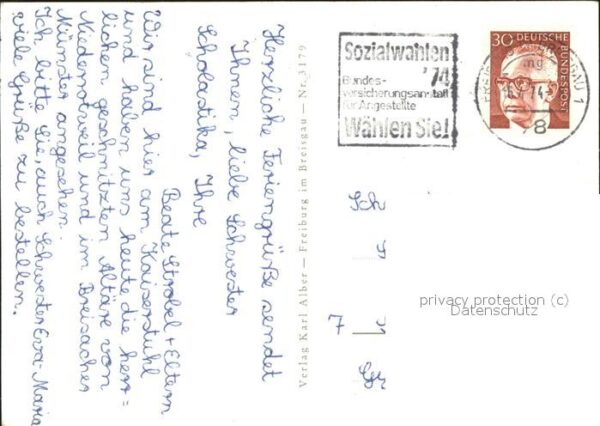 Herzliche Feriengrüße sendet
Ihnen, liebe Schwester
Scholastika, Ihre
Beate Strobel + Eltern
Wir sind hier am Kaiserstuhl
und haben uns heute die herr=
lichen geschnitzten Altäre von
Niederrotweil und im Breisacher
Münster angesehen.
Ich bitte Sie, auch Schwester Eva-Maria
viele Grüße zu bestellen.
Verlag Karl Alber — Freiburg im Breisgau — Nr. 3179
Sozialwahlen
'74
Bundes-
versicherungsanstalt
für Angestellte
Wählen Sie!
30
DEUTSCHE
BUNDESPOST
Sch
7
privacy protection (c)
Datenschutz